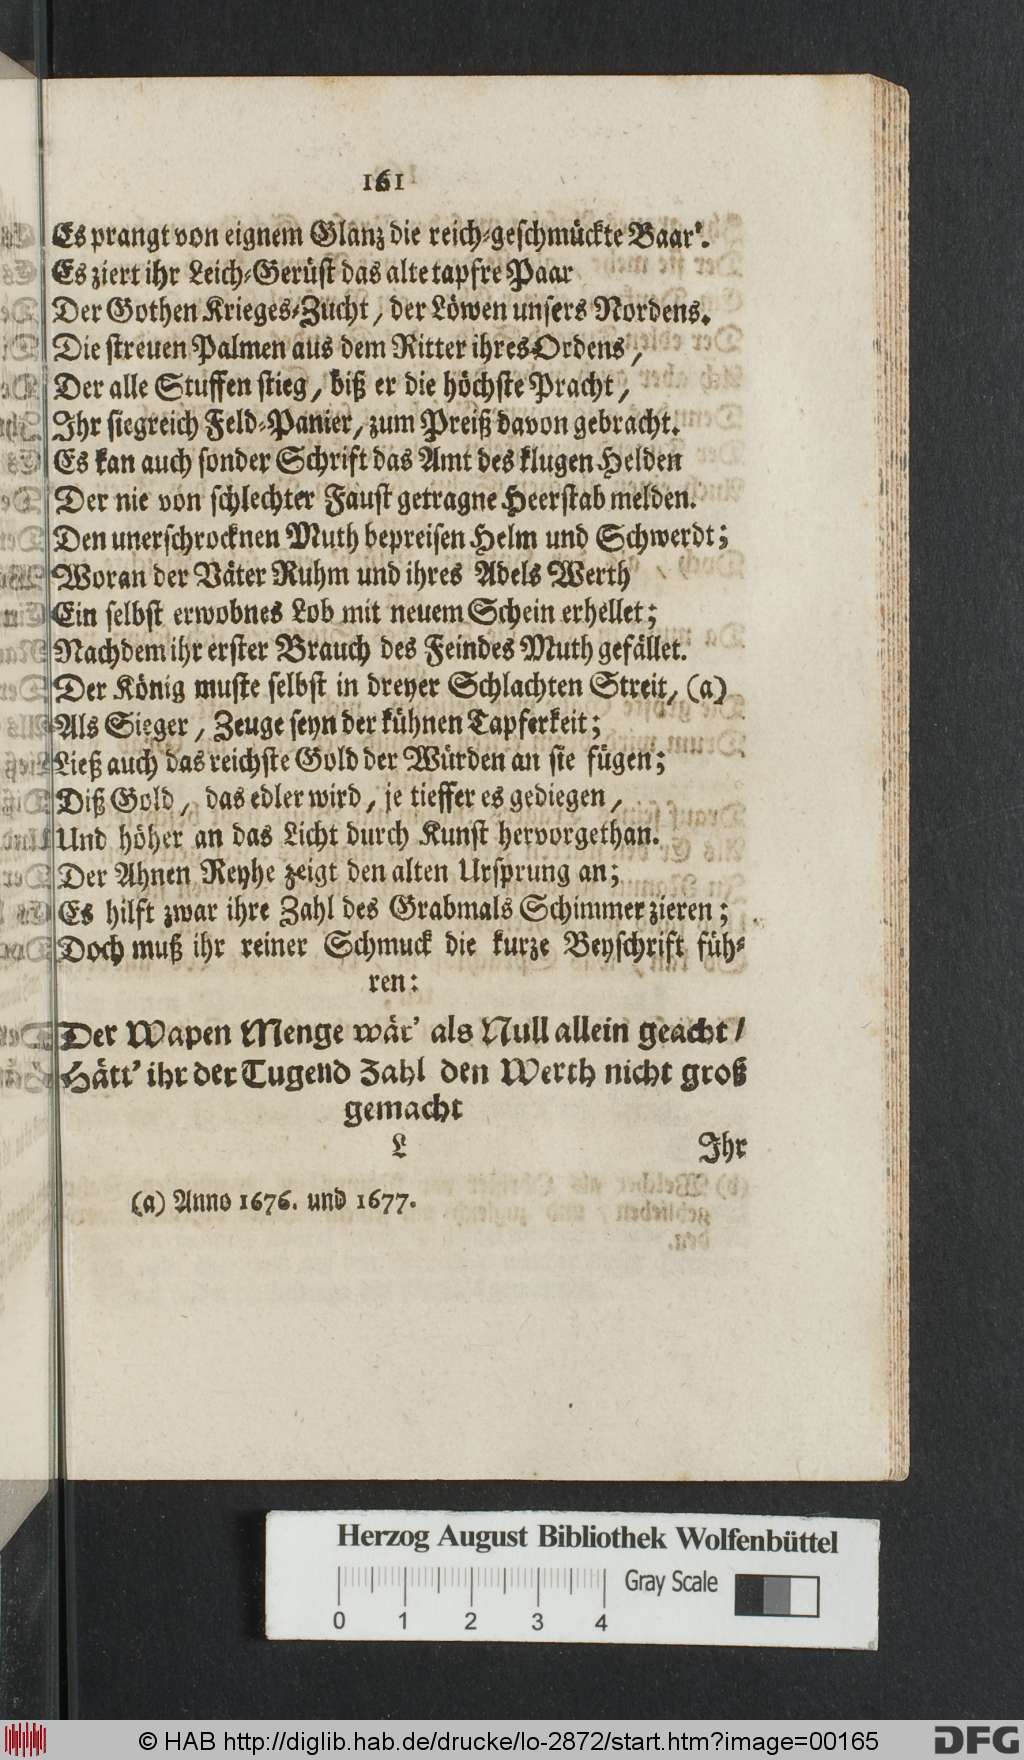 161
Es prangt von eignem Glanz die reich-geschmückte Baar'.
Es ziert ihr Leich-Gerüst das alte tapfre Paar
Der Gothen Krieges-Zucht, der Löwen unsers Nordens.
Die streuen Palmen aus dem Ritter ihres Ordens,
Der alle Stuffen stieg, biß er die höchste Pracht,
Ihr siegreich Feld-Panier, zum Preiß davon gebracht.
Es kan auch sonder Schrift das Amt des klugen Helden
Der nie von schlechter Faust getragne Heerstab melden.
Den unerschrocknen Muth bepreisen Helm und Schwerdt;
Woran der Väter Ruhm und ihres Adels Werth
Ein selbst erwobnes Lob mit neuem Schein erhellet;
Nachdem ihr erster Brauch des Feindes Muth gefället.
Der König muste selbst in dreyer Schlachten Streit, (a)
Als Sieger, Zeuge seyn der kühnen Tapferkeit;
Ließ auch das reichste Gold der Würden an sie fügen;
Diß Gold, das edler wird, je tieffer es gediegen,
Und höher an das Licht durch Kunst hervorgethan.
Der Ahnen Reyhe zeigt den alten Ursprung an;
Es hilft zwar ihre Zahl des Grabmals Schimmer zieren;
Doch muß ihr reiner Schmuck die kurze Beyschrift füh-
ren:
Der Wapen Menge wär' als Null allein geacht/
Hätt' ihr der Tugend Zahl den Werth nicht groß
gemacht
L Ihr
(a) Anno 1676. und 1677.
Herzog August Bibliothek Wolfenbüttel
Gray Scale
0 1 2 3 4
© HAB http://diglib.hab.de/drucke/lo-2872/start.htm?image=00165
DFG